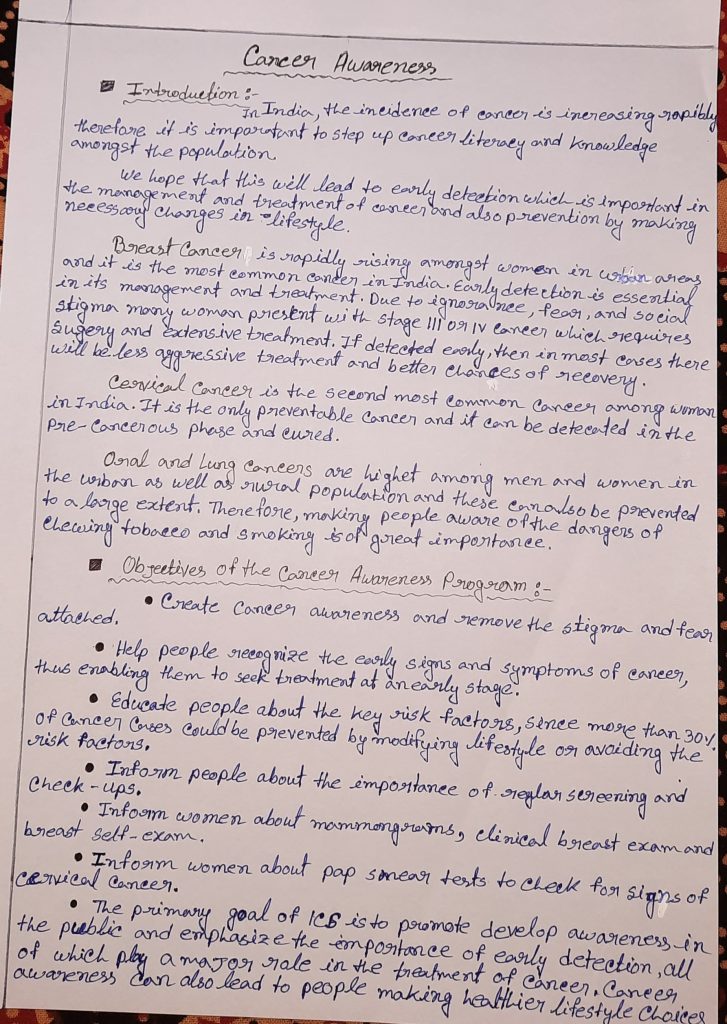 Cancer Awareness
Introduction :-
In India, the incidence of cancer is increasing rapibly
therefore it is imporatant to step up cancer literacy and knowledge
amongst the population.
We hope that this will lead to early detection which is important in
the management and treatment of cancer and also prevention by making
necessary changes in lifestyle.
Breast Cancer is rapidly rising amongst women in urban areas
and it is the most common cancer in India. Early detection is essential
in its management and treatment. Due to ignorance, fear, and social
stigma many woman present with stage III or IV cancer which requires
sugery and extensive treatment. If detected early, then in most cases there
will be less aggressive treatment and better chances of recovery.
Cervical Cancer is the second most common cancer among woman
in India. It is the only preventable cancer and it can be detecated in the
pre-cancerous phase and cured.
Oral and Lung cancers are highet among men and women in
the urban as well as rural population and these can also be prevented
to a large extent. Therefore, making people aware of the dangers of
chewing tobacco and smoking is of great importance.
Objectives of the Cancer Awareness Program :-
• Create cancer awareness and remove the stigma and fear
attached.
• Help people recognize the early signs and symptoms of cancer,
thus enabling them to seek treatment at an early stage.
• Educate people about the key risk factors, since more than 30%
of cancer cases could be prevented by modifying lifestyle or avoiding the
risk factors.
• Inform people about the importance of reglar screening and
check-ups.
• Inform women about mammongrams, clinical breast exam and
breast self-exam.
• Inform women about pap smear tests to check for signs of
cervical cancer.
• The primary goal of ICS is to promote develop awareness in
the public and emphasize the importance of early detection, all
of which play a major rale in the treatment of cancer. Cancer
awareness can also lead to people making healthier lifestyle choices